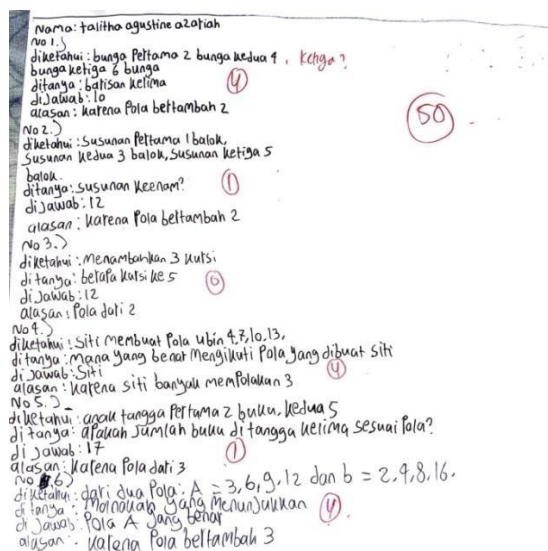 Nama: talitha agustine azariah
No 1.)
diketahui: bunga Pertama 2 bunga kedua 4, ketiga?
bunga ketiga 6 bunga
4
ditanya: batisan kelima
diJawab: 10
alasan: karena Pola bertambah 2
50
No 2.)
diketahui: Susunan Pertama 1 balok,
Susunan kedua 3 balok, Susunan ketiga 5
balok.
ditanya: Susunan keenam?
1
diJawab: 12
alasan: karena Pola bertambah 2
No 3.)
diketahui: Menambahkan 3 kursi
ditanya: berapa kursi ke 5
0
diJawab: 12
alasan: Pola dari 2
No 4.)
diketahui: Siti Membuat Pola ubin 4,7,10,13,
ditanya: Mana yang benar Mengikuti Pola yang dibuat siti
diJawab: Siti
4
alasan: karena siti banyak memPolakan 3
No 5.)
diketahui: anak tangga Pertama 2 buku, kedua 5
ditanya: apakah Jumlah buku di tangga kelima sesuai Pola?
diJawab: 17
1
alasan: karena Pola dari 3
No 6)
diketahui: dari dua Pola: A = 3,6,9,12 dan b = 2,4,8,16.
ditanya: yang Menunjukkan
4
diJawab: Pola A yang benar
alasan: karena Pola bertambah 3